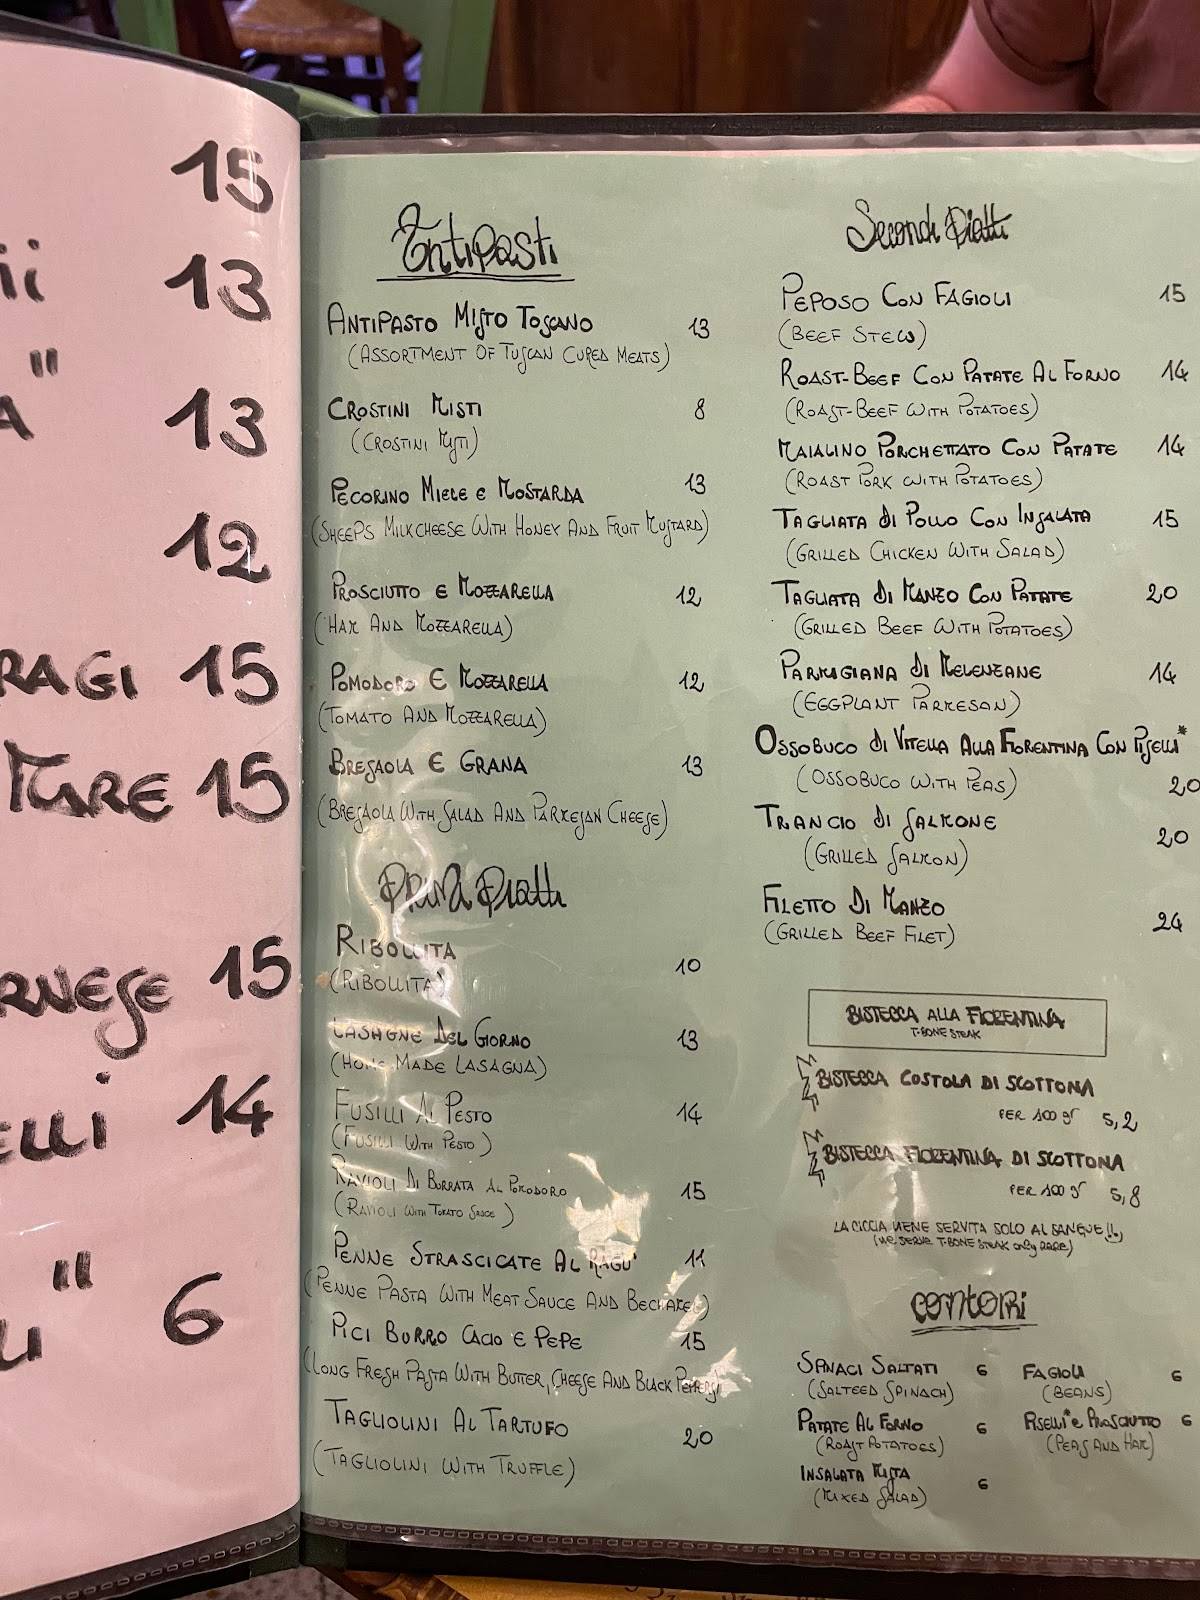 15
ii 13
A" 13
12
RAGI 15
MARE 15
RNESE 15
ELLI 14
LI" 6
Antipasti
ANTIPASTO MISTO TOSCANO 13
(ASSORTMENT OF TUSCAN CURED MEATS)
CROSTINI MISTI 8
(CROSTINI MISTI)
PECORINO MIELE E MOSTARDA 13
(SHEEPS MILK CHEESE WITH HONEY AND FRUIT MUSTARD)
PROSCIUTTO E MOZZARELLA 12
(HAM AND MOZZARELLA)
POMODORO E MOZZARELLA 12
(TOMATO AND MOZZARELLA)
BRESAOLA E GRANA 13
(BRESAOLA WITH SALAD AND PARMESAN CHEESE)
Primi Piatti
RIBOLLITA 10
(RIBOLLITA)
LASAGNE DEL GIORNO 13
(HOME MADE LASAGNA)
FUSILLI AL PESTO 14
(FUSILLI WITH PESTO)
RAVIOLI DI BURRATA AL POMODORO 15
(RAVIOLI WITH TOMATO SAUCE)
PENNE STRASCICATE AL RAGU' 11
(PENNE PASTA WITH MEAT SAUCE AND BECHAMEL)
PICI BURRO CACIO E PEPE 15
(LONG FRESH PASTA WITH BUTTER, CHEESE AND BLACK PEPPERS)
TAGLIOLINI AL TARTUFO 20
(TAGLIOLINI WITH TRUFFLE)
Secondi Piatti
PEPOSO CON FAGIOLI 15
(BEEF STEW)
ROAST-BEEF CON PATATE AL FORNO 14
(ROAST-BEEF WITH POTATOES)
MAIALINO PORCHETTATO CON PATATE 14
(ROAST PORK WITH POTATOES)
TAGLIATA DI POLLO CON INSALATA 15
(GRILLED CHICKEN WITH SALAD)
TAGLIATA DI MANZO CON PATATE 20
(GRILLED BEEF WITH POTATOES)
PARMIGIANA DI MELENZANE 14
(EGGPLANT PARMESAN)
OSSOBUCO DI VITELLA ALLA FIORENTINA CON PISELLI*
(OSSOBUCO WITH PEAS) 20
TRANCIO DI SALMONE 20
(GRILLED SALMON)
FILETTO DI MANZO 24
(GRILLED BEEF FILET)
BISTECCA ALLA FIORENTINA
T-BONE STEAK
BISTECCA COSTOLA DI SCOTTONA
PER 100 gr 5,2
BISTECCA FIORENTINA DI SCOTTONA
PER 100 gr 5,8
LA CICCIA VIENE SERVITA SOLO AL SANGUE!!
(WE SERVE T-BONE STEAK only RARE)
CONTORNI
SPINACI SALTATI 6
(SALTEED SPINACH)
PATATE AL FORNO 6
(ROAST POTATOES)
INSALATA MISTA 6
(MIXED SALAD)
FAGIOLI 6
(BEANS)
PISELLI* e PROSCIUTTO 6
(PEAS AND HAM)